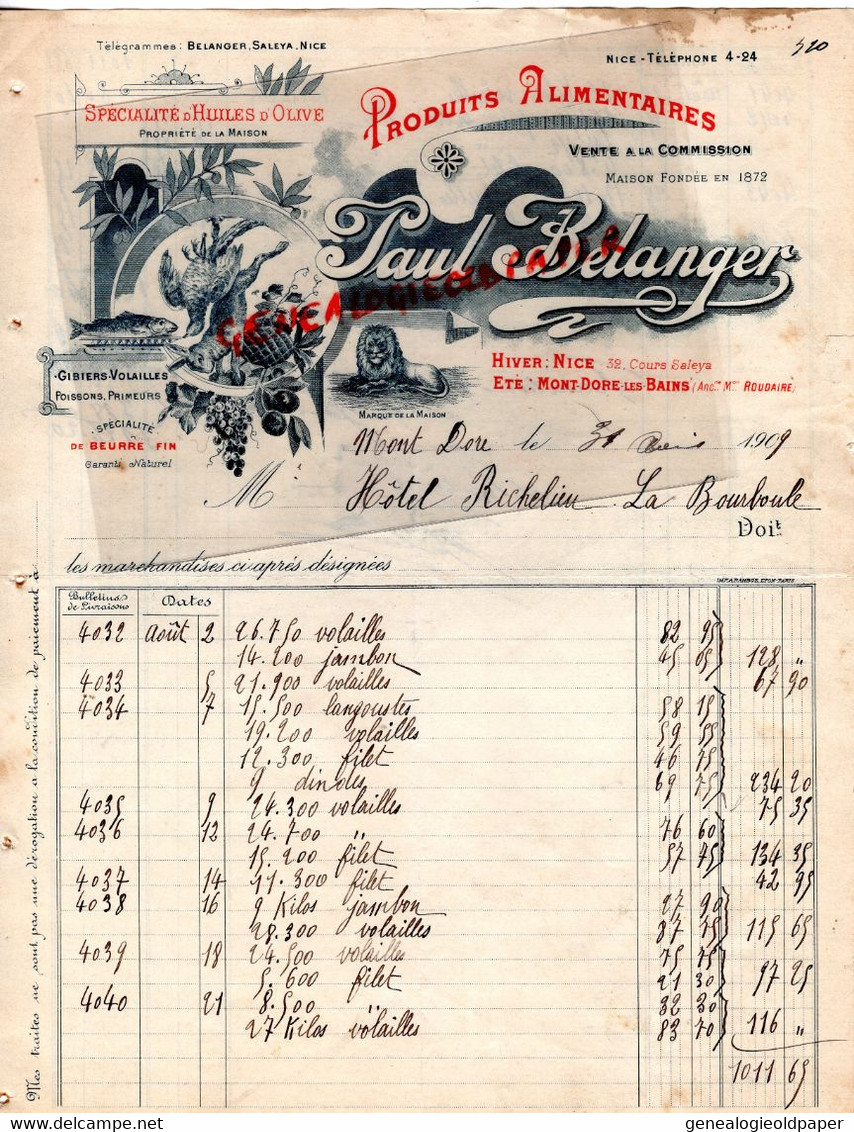 Télégrammes: BELANGER, SALEYA, NICE
NICE - TÉLÉPHONE 4-24
520
SPÉCIALITÉ D'HUILES D'OLIVE
PROPRIÉTÉ DE LA MAISON
PRODUITS ALIMENTAIRES
VENTE A LA COMMISSION
MAISON FONDÉE EN 1872
Paul Belanger
GENEALOGIEOLDPAPER
GIBIERS-VOLAILLES
POISSONS, PRIMEURS
HIVER: NICE 32, Cours Saleya
ETÉ: MONT-DORE-LES-BAINS (ANC.NE M.ON ROUDAIRE)
MARQUE DE LA MAISON
SPÉCIALITÉ
DE BEURRE FIN
Garanti Naturel
Mont Dore le 31 1909
M Hôtel Richelieu La Bourboule
Doit
les marchandises ci après désignées
Bulletins de Livraisons Dates
4032 Août 2 26.750 volailles 82 95
14.200 jambon 45 05 128 "
4033 5 21.900 volailles 67 90
4034 7 15.500 langoustes 58 15
19.200 volailles 59 55
12.300 filet 46 75
9 dindes 69 75 234 20
4035 9 24.300 volailles 75 35
4036 12 24.700 " 76 60
15.200 filet 57 75 134 35
4037 14 11.300 filet 42 95
4038 16 9 Kilos jambon 27 90
28.300 volailles 87 75 115 65
4039 18 24.500 volailles 75 95
5.600 filet 21 30 97 25
4040 21 8.500 " 32 30
27 Kilos volailles 83 70 116 "
1011 65
Mes traites ne sont pas une dérogation a la condition de paiement à
genealogieoldpaper